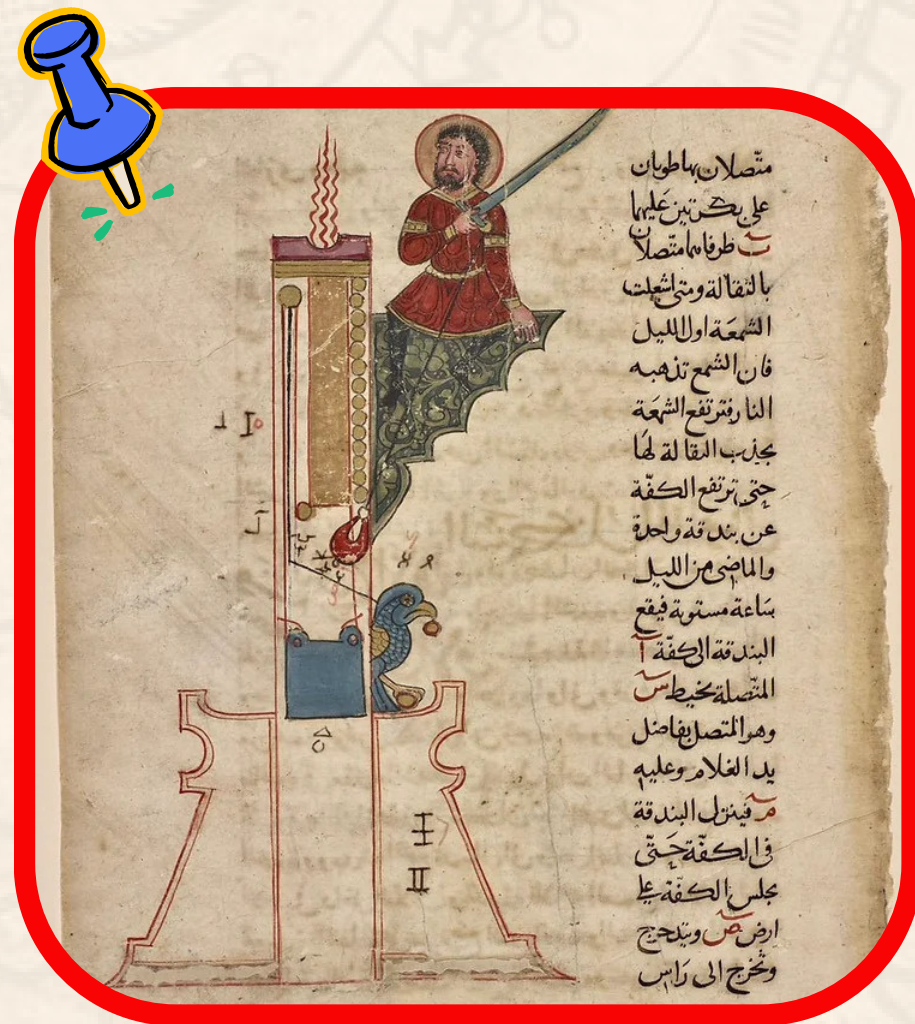 متّصلان
على بكرتين عليهما
طرفاهما متّصلان
بالثقالة ومتى اشعلت
الشمعَة اول الليل
فان الشمع تذهبه
النار فترتفع الشمعَة
بجذب الثقالة لها
حتى ترتفع الكفّة
عن بندقة واحدة
والماضى من الليل
سَاعة مستوية فيقع
البندقة الى كفّة آ
المتّصلة بخيط س
وهو المتصل بفاضل
يد الغلام وعليه
م فينزل البندقة
فى الكفة حَتّى
يجلس الكفّة على
ارض ص ويتدحرج
وتخرج الى رَاس